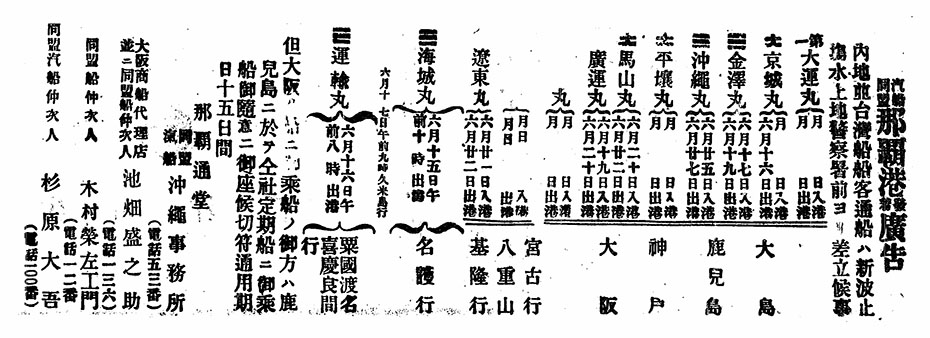 汽船同盟 那覇港發着廣告
内地並台湾船船客通船ハ新波止
塲水上地警察署前ヨリ差立候事
第一大運丸 月 日入港 月 日出港
大京城丸 六月十六日入港 月 日出港 大島
金澤丸 六月十七日入港 六月十九日出港
沖縄丸 六月廿五日入港 六月廿七日出港 鹿兒島
平壤丸 月 日入港 月 日出港 神戸
大馬山丸 六月廿日入港 六月廿二日出港
廣運丸 六月十九日入港 六月二十日出港 大阪
丸 月 日入港 月 日出港
月 日入港 月 日出港 宮古行 八重山
遼東丸 六月廿一日入港 六月廿二日出港 基隆行
海城丸 六月十五日午前十時出港 名護行
六月十七日午前九時久米島行
運輸丸 六月十六日午前八時出港 粟國渡名喜慶良間行
但大阪ハ船ニ乘船ノ御方ハ鹿
兒島ニ於テ仝社定期船ニ御乘
船御隨意ニ御座候切符通用期
日十五日間
那覇通堂
同盟汽船 沖縄事務所
(電話五三番)
大阪商船代理店並ニ同盟船仲次人 池畑盛之助
(電話一三六)
同盟船仲次人 木村榮左エ門
(電話一一二番)
同盟汽船仲次人 杉原大吾
(電話一〇〇番)